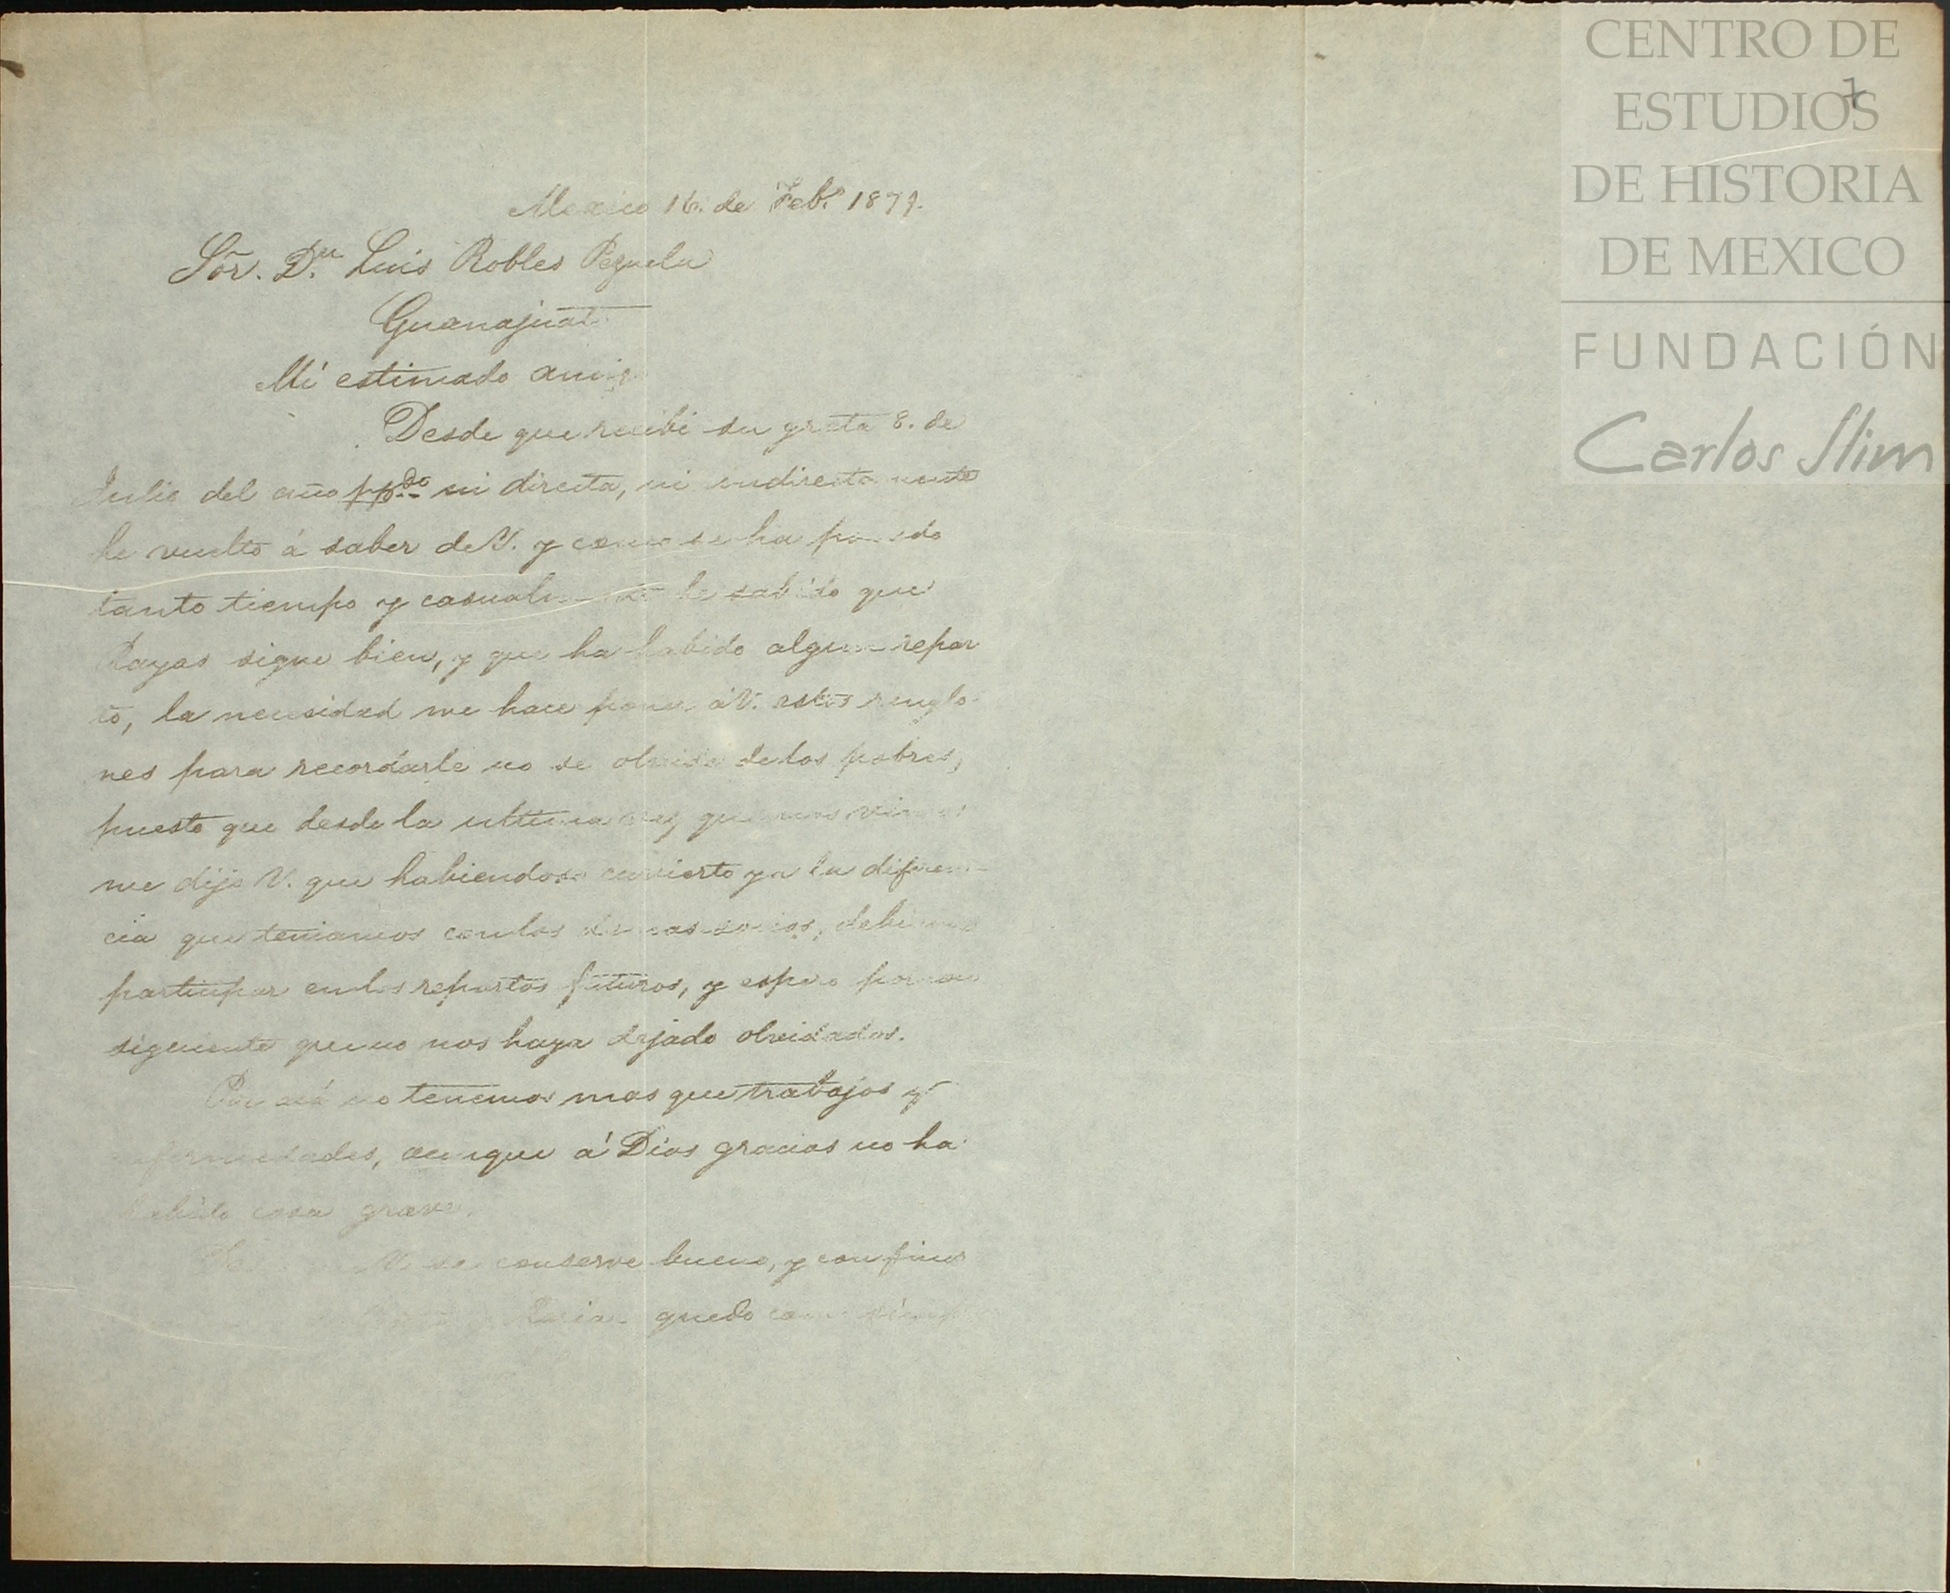 CENTRO DE
ESTUDIOS
DE HISTORIA
DE MEXICO
FUNDACIÓN
Carlos Slim
7
Mexico 16. de Feb.º 1879.
Sõr. D.n Luis Robles Pezuela
Guanajuato
Mi estimado amigo
Desde que recibi su grata 8. de
Julio del año ppdo ni directa, ni indirectamente
he vuelto á saber de V. y como se ha pasado
tanto tiempo y casualmente he sabido que
Rayas sigue bien, y que ha habido algun repar
to, la necesidad me hace poner á V. estos renglo-
nes para recordarle no se olvide de los pobres,
puesto que desde la ultima vez que nos vimos
me dijo V. que habiendose cubierto ya la diferen-
cia que teniamos con los demas socios, debiamos
participar en los repartos futuros, y espero por con
siguiente que no nos haya dejado olvidados.
Por acá no tenemos mas que trabajos y
enfermedades, aunque á Dios gracias no ha
habido cosa grave.
V. se conserve bueno, y con finos
quedo como siempre